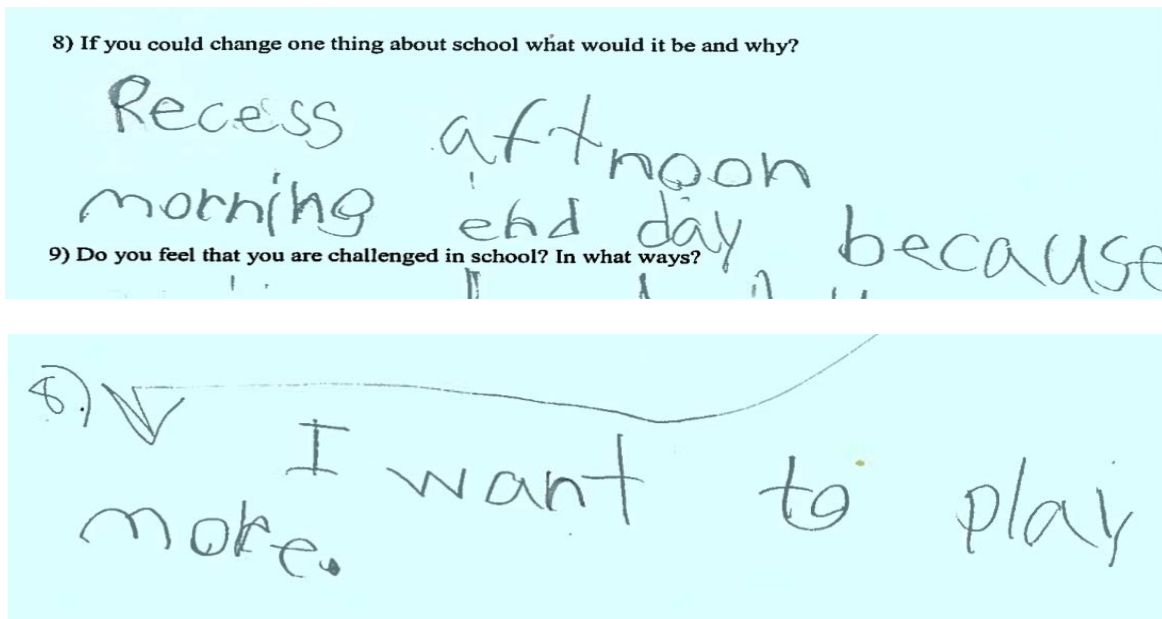 8) If you could change one thing about school what would it be and why?
Recess aftnoon
morning end day because
9) Do you feel that you are challenged in school? In what ways?
8.) I want to play
more.